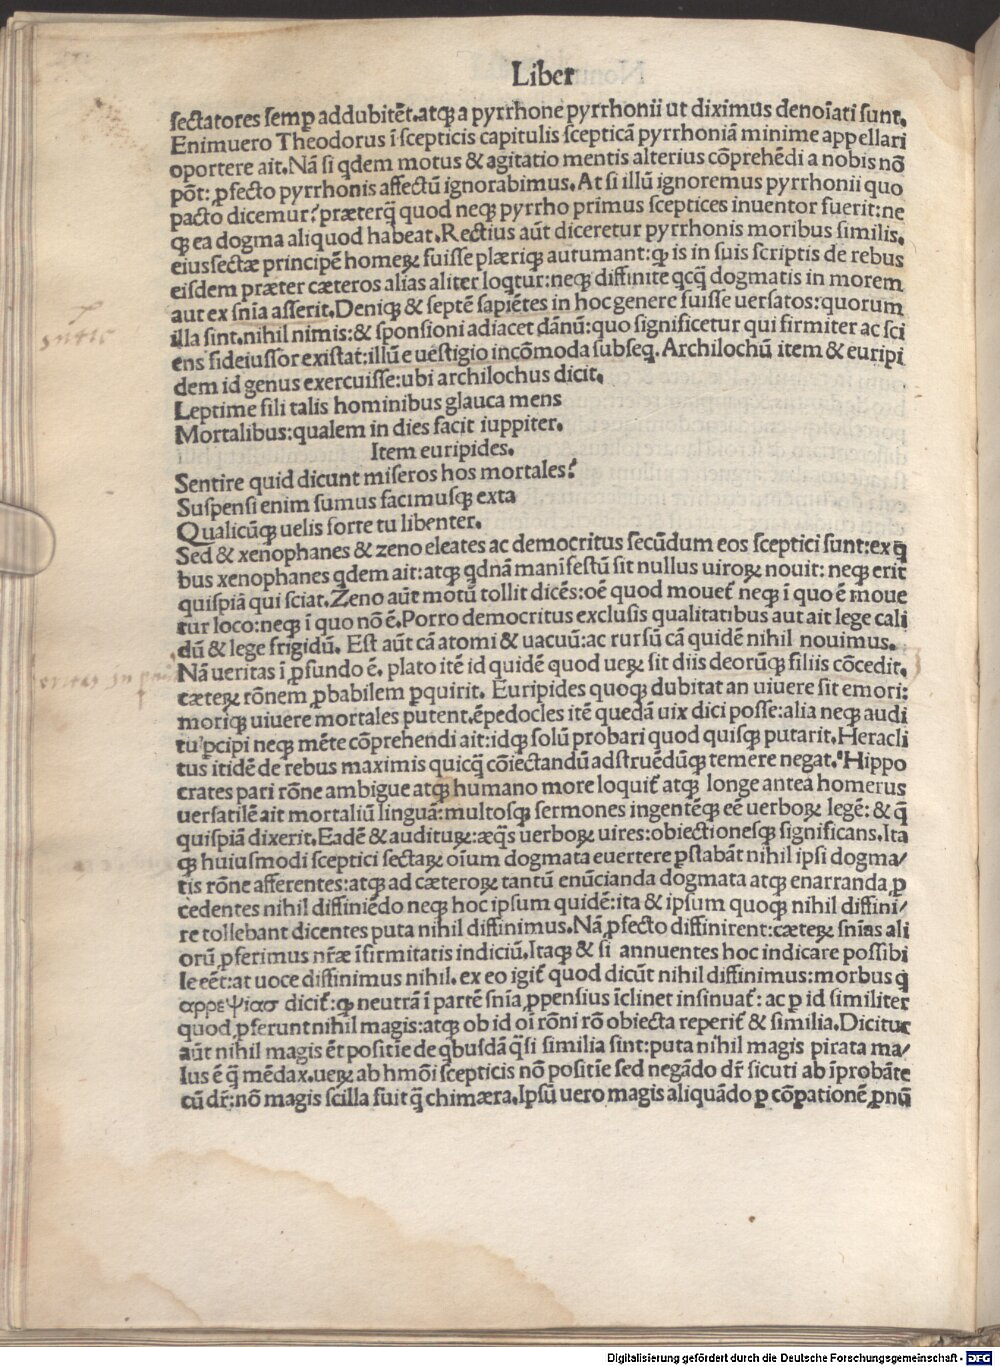 Liber
sectatores semꝑ addubitēt.atqꝫ a pyrrhone pyrrhonii ut diximus denoīati sunt.
Enimuero Theodorus ī scepticis capitulis scepticā pyrrhoniā minime appellari
oportere ait.Nā si qdem motus & agitatio mentis alterius cōprehēdi a nobis nō
pōt: ꝓfecto pyrrhonis affectū ignorabimus.At si illū ignoremus pyrrhonii quo
pacto dicemur? præterq̄ quod neqꝫ pyrrho primus sceptices inuentor fuerit:ne
qꝫ ea dogma aliquod habeat.Rectius aūt diceretur pyrrhonis moribus similis.
eius sectæ principē homeꝝ fuisse plæriqꝫ autumant:qꝫ is in suis scriptis de rebus
eisdem præter cæteros alias aliter loqtur:neqꝫ diffinite qcq̄ dogmatis in morem
aut ex snīa asserit.Deniqꝫ & septē sapiētes in hoc genere fuisse uersatos:quorum
illa sint.nihil nimis:& sponsioni adiacet dānū:quo significetur qui firmiter ac sci
ens fideiussor existat:illū e uestigio incōmoda subseq.Archilochū item & euripi
dem id genus exercuisse:ubi archilochus dicit.
Leptime fili talis hominibus glauca mens
Mortalibus:qualem in dies facit iuppiter.
Item euripides.
Sentire quid dicunt miseros hos mortales?
Suspensi enim sumus facimusqꝫ exta
Qualicūqꝫ uelis sorte tu libenter.
Sed & xenophanes & zeno eleates ac democritus secūdum eos sceptici sunt:ex q̄
bus xenophanes qdem ait:atqꝫ qdnā manifestū sit nullus uiroꝝ nouit: neqꝫ erit
quispiā qui sciat.Zeno aūt motū tollit dicēs:oē quod mouet́ neqꝫ ī quo ē moue
tur loco:neqꝫ ī quo nō ē.Porro democritus exclusis qualitatibus aut ait lege cali
dū & lege frigidū. Est aūt cā atomi & uacuū:ac rursū cā quidē nihil nouimus.
Nā ueritas ī ꝓfundo ē. plato itē id quidē quod ueꝝ sit diis deorūqꝫ filiis cōcedit.
cæteꝝ rōnem ꝓbabilem ꝑquirit. Euripides quoqꝫ dubitat an uiuere sit emori:
moriqꝫ uiuere mortales putent.ēpedocles itē quedā uix dici posse:alia neqꝫ audi
tu ꝑcipi neqꝫ mēte cōprehendi ait:idqꝫ solū probari quod quisqꝫ putarit.Heracli
tus itidē de rebus maximis quicq̄ cōiectandū adstruēdūqꝫ temere negat.Hippo
crates pari rōne ambigue atqꝫ humano more loquit́ atqꝫ longe antea homerus
uersatilē ait mortaliū linguā:multosqꝫ sermones ingentēqꝫ eē uerboꝝ legē: & q̄
quispiā dixerit.Eadē & audituꝝ:æq̄s uerboꝝ uires:obiectionesqꝫ significans.Ita
qꝫ huiusmodi sceptici sectaꝝ oīum dogmata euertere ꝑstabāt nihil ipsi dogma/
tis rōne afferentes:atqꝫ ad cæteroꝝ tantū enūcianda dogmata atqꝫ enarranda ꝓ
cedentes nihil diffiniēdo neqꝫ hoc ipsum quidē:ita & ipsum quoqꝫ nihil diffini/
re tollebant dicentes puta nihil diffinimus.Nā ꝓfecto diffinirent:cæteꝝ snīas ali
orū ꝓferimus nr̄æ īfirmitatis indiciū.Itaqꝫ & si annuentes hoc indicare possibi
le eēt:at uoce diffinimus nihil. ex eo igit́ quod dicūt nihil diffinimus:morbus q̄
αρρεψιασ dicit́:qꝫ neutrā ī partē snīa ꝓpensius īclinet insinuat́: ac ꝑ id similiter
quod ꝓferunt nihil magis:atqꝫ ob id oī rōni rō obiecta reperit́ & similia.Dicitur
aūt nihil magis ēt positīe de qbusdā q̄si similia sint:puta nihil magis pirata ma/
lus ē q̄ mēdax.ueꝝ ab hmōi scepticis nō positīe sed negādo dr̄ sicuti ab īprobāte
cū dr̄:nō magis scilla fuit q̄ chimæra.Ipsū uero magis aliquādo ꝑ cōpationē ꝓnū
Digitalisierung gefördert durch die Deutsche Forschungsgemeinschaft - DFG